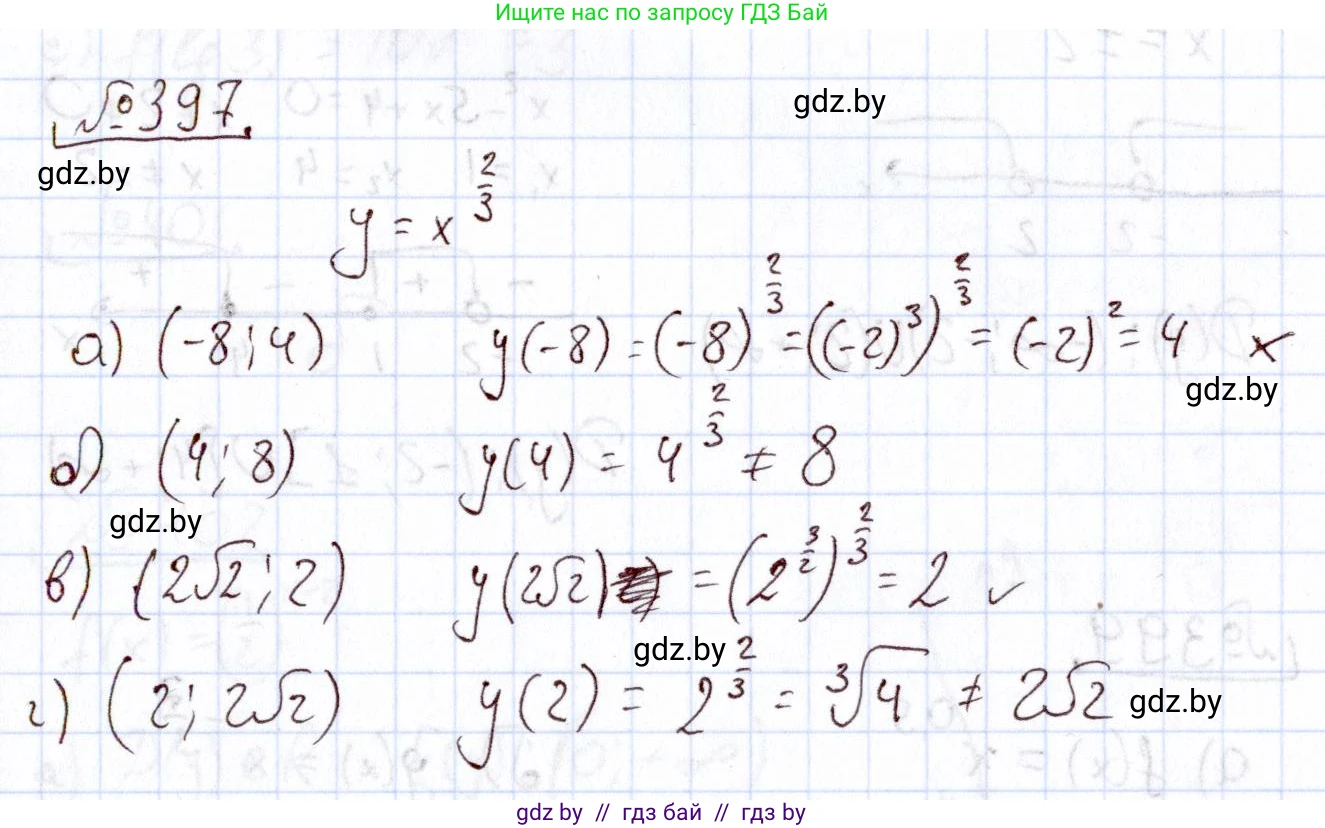 Ищите нас по запросу ГДЗ Бай
№397
gdz.by
gdz.by
y = x^(2/3)
а) (-8; 4) y(-8) = (-8)^(2/3) = ((-2)^3)^(2/3) = (-2)^2 = 4 ×
gdz.by
б) (4; 8) y(4) = 4^(2/3) ≠ 8
gdz.by
в) (2√2; 2) y(2√2) = (2^(3/2))^(2/3) = 2 ✓
gdz.by
г) (2; 2√2) y(2) = 2^(2/3) = ³√4 ≠ 2√2
gdz.by
gdz by // гдз бай // gdz by